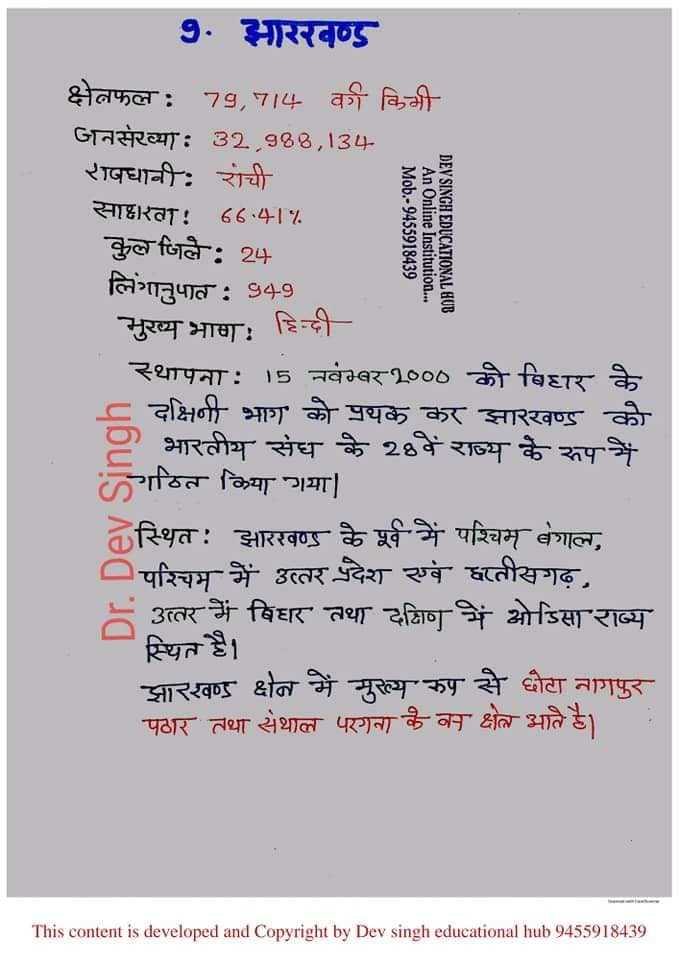 9. झारखण्ड
क्षेत्रफल : 79,714 वर्ग किमी
जनसंख्या : 32,988,134
राजधानी : रांची
साक्षरता : 66.41%
कुल जिले : 24
लिंगानुपात : 949
मुख्य भाषा : हिन्दी
DEV SINGH EDUCATIONAL HUB
An Online Institution...
Mob.- 9455918439
स्थापना : 15 नवंम्बर 2000 को बिहार के
दक्षिणी भाग को प्रथक कर झारखण्ड को
भारतीय संघ के 28वें राज्य के रूप में
गठित किया गया|
Dr. Dev Singh
स्थित : झारखण्ड के पूर्व में पश्चिम बंगाल,
पश्चिम में उत्तर प्रदेश एवं छत्तीसगढ़,
उत्तर में बिहार तथा दक्षिण में ओडिसा राज्य
स्थित है।
झारखण्ड क्षेत्र में मुख्य रुप से छोटा नागपुर
पठार तथा संथाल परगना के वन क्षेत्र आते है|
This content is developed and Copyright by Dev singh educational hub 9455918439